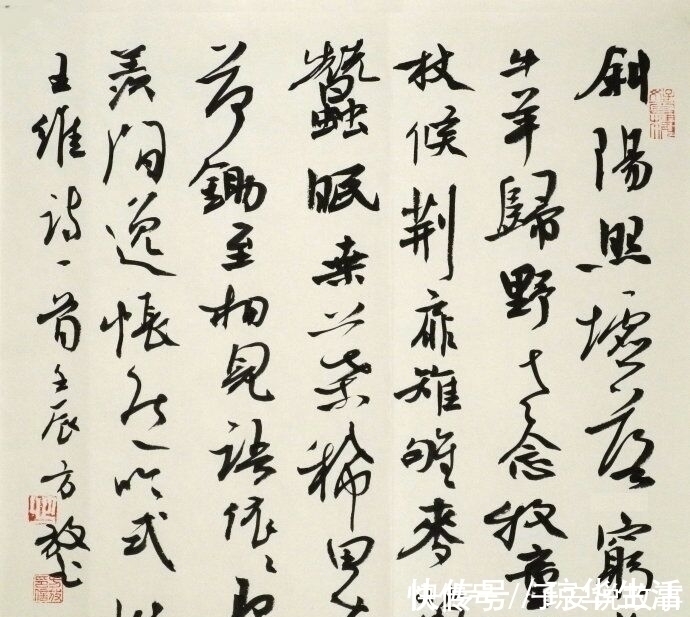 斜陽照墟落窮
牛羊歸野老念牧童
杖候荊扉雉雊麥
蠶眠桑葉稀田
荷鋤至相見語依依即
羨閒逸悵然吟式
王維詩一首壬辰方放
快传号//